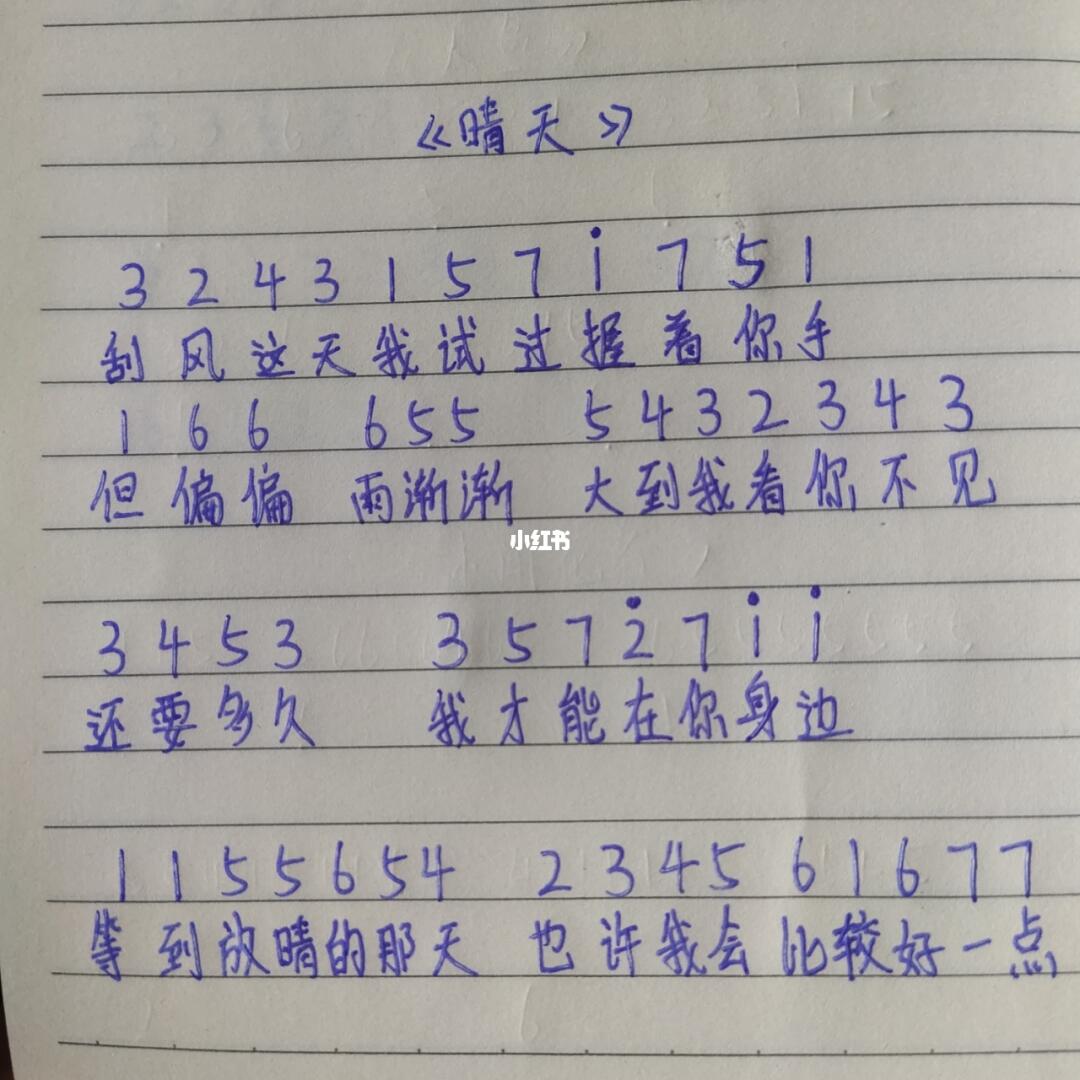 《晴天》
3 2 4 3 1 5 7 i 7 5 1
刮风这天我试过握着你手
1 6 6 6 5 5 5 4 3 2 3 4 3
但偏偏 雨渐渐 大到我看你不见
小红书
3 4 5 3 3 5 7 2̇ 7 i i
还要多久 我才能在你身边
1 1 5 5 6 5 4 2 3 4 5 6 1 6 7 7
等到放晴的那天 也许我会比较好一点